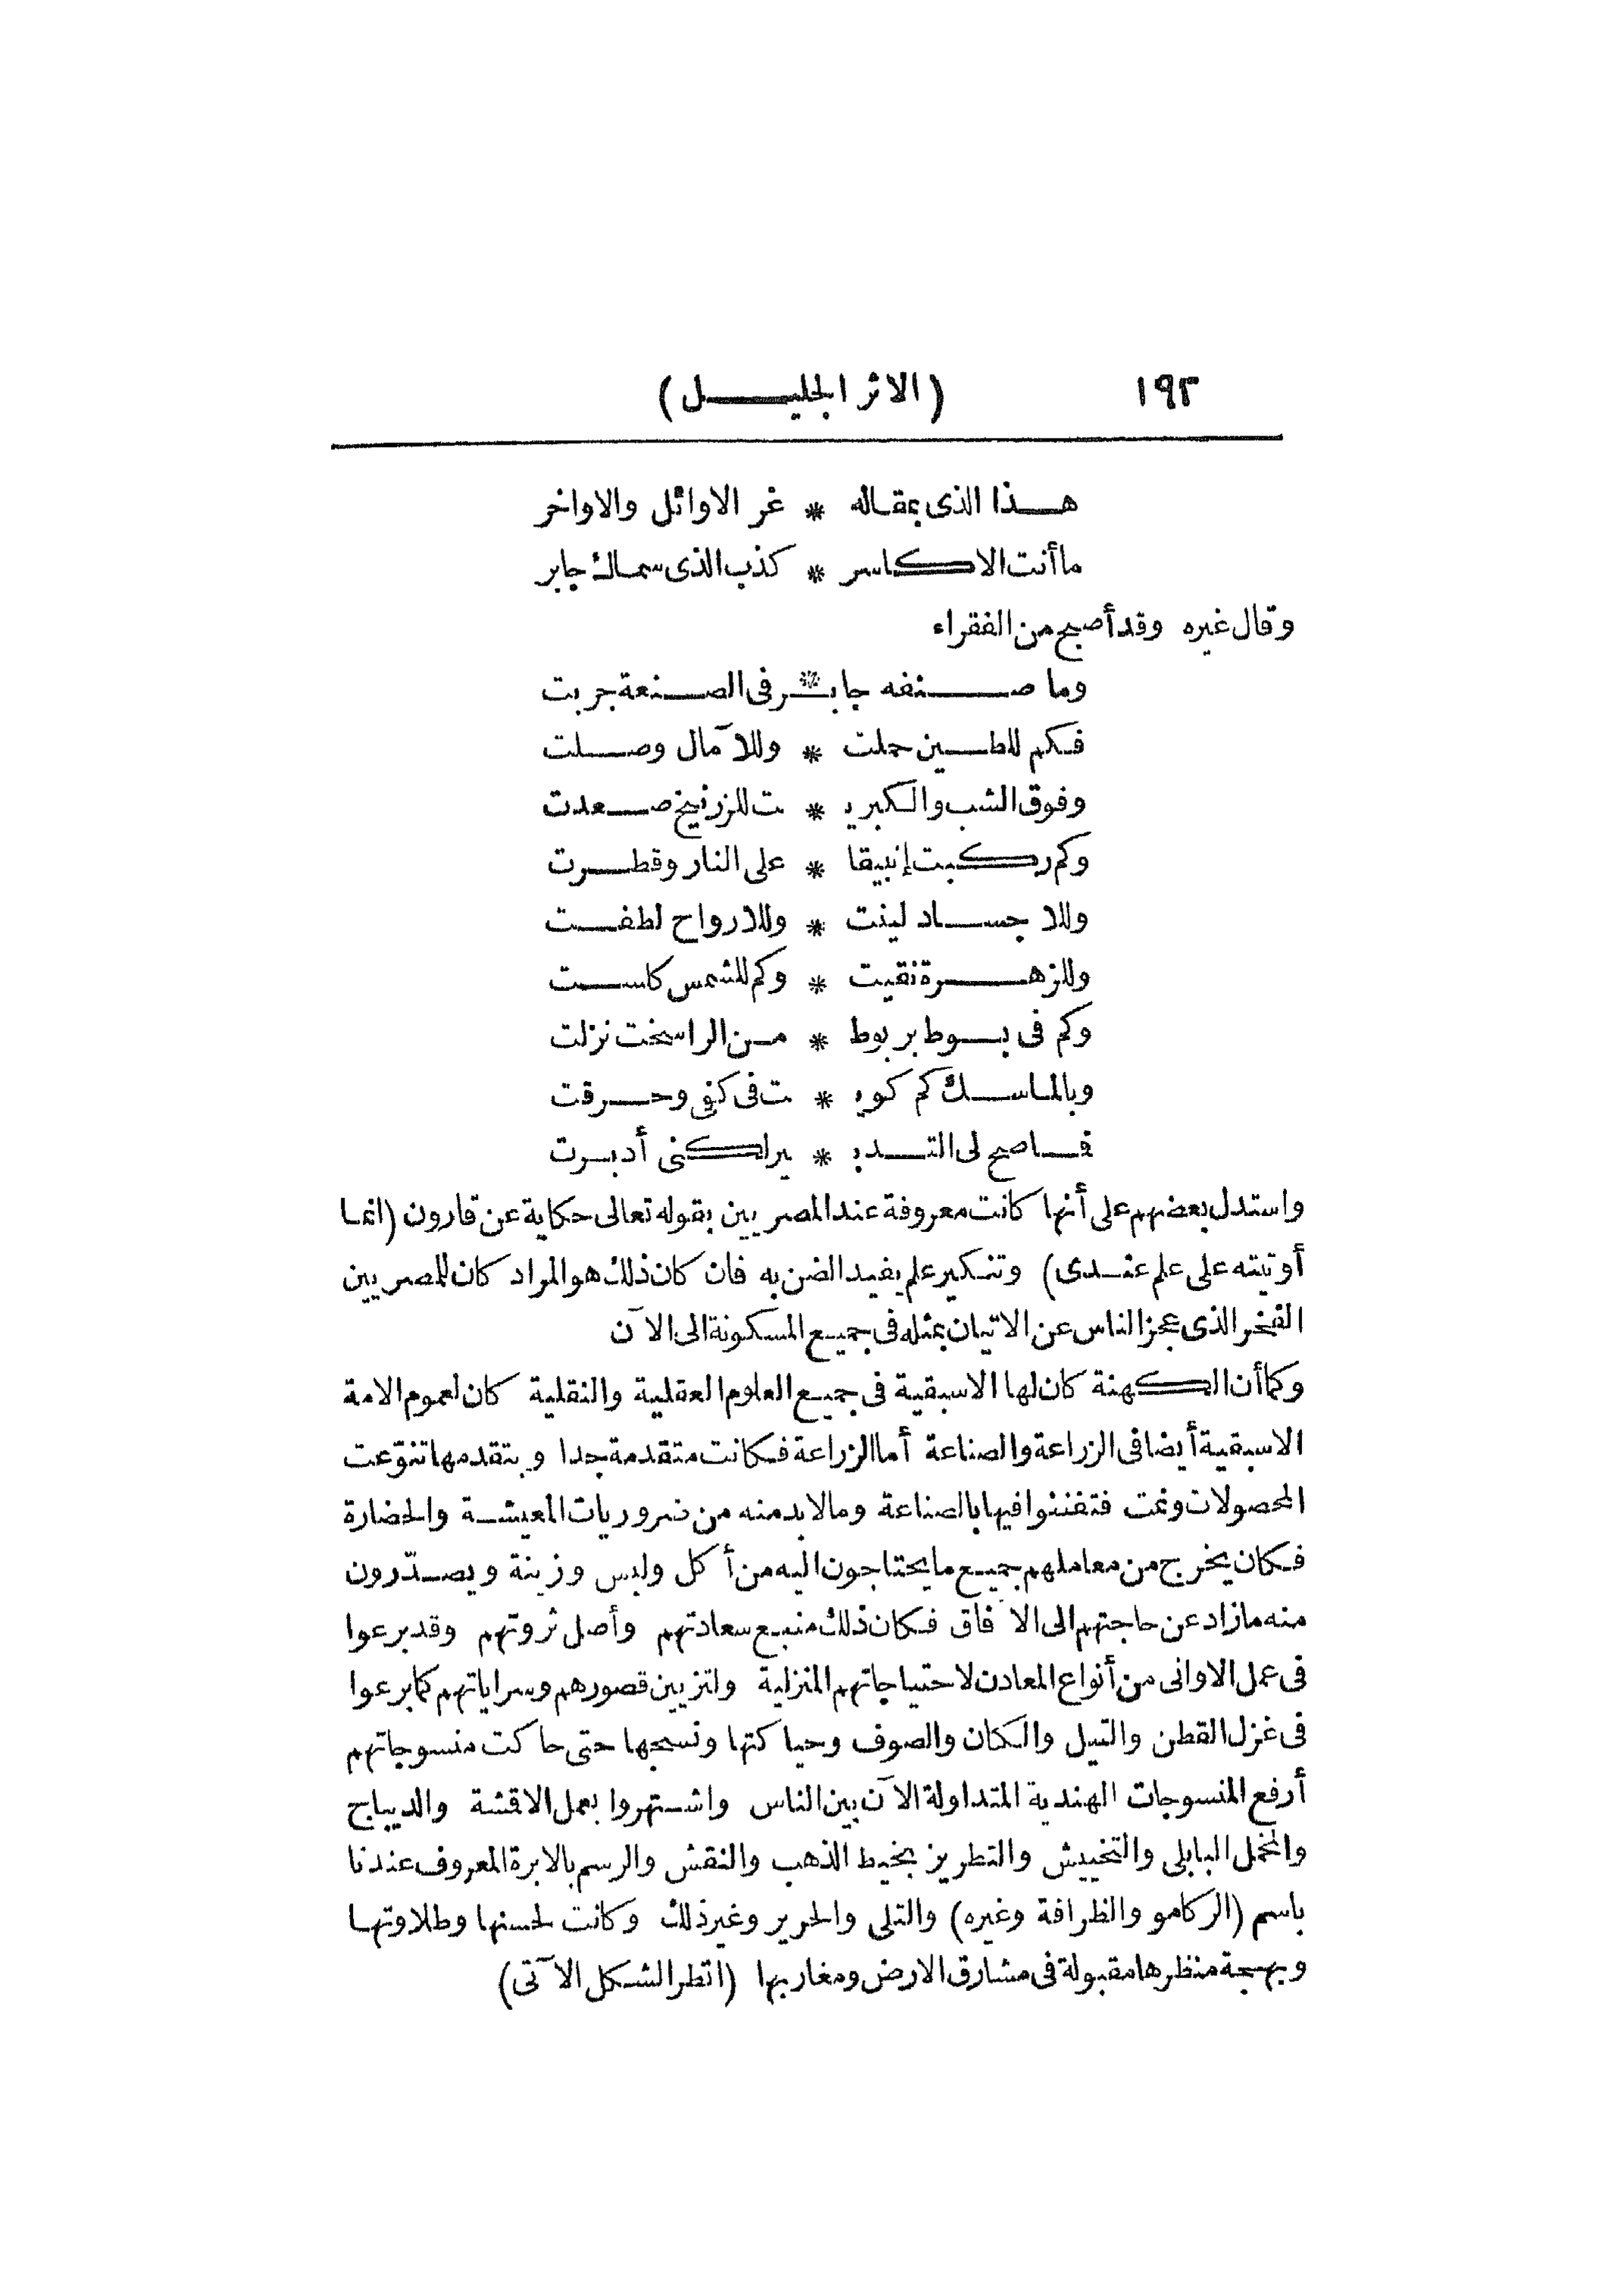 ١٩٢ (الاثر الجليل)
هذا الذى بمقاله * غر الاوائل والاواخر
ما أنت الا كاسر * كذب الذى سماك جابر
وقال غيره وقد أصبح من الفقراء
وما صنفه جابـ * ـر فى الصنعة جربت
فكم للطين حملت * وللآمال وصلت
وفوق الشب والكبريـ * ـت للزرنيخ صعدت
وكم ركبت إنبيقا * على النار وقطرت
وللاجساد لينت * وللارواح لطفت
وللزهرة نقيت * وكم للشمس كاست
وكم فى بوط بربوط * من الراسخت نزلت
وبالماسك كم كويـ * ـت فى كفى وحرقت
فما صح لى التدبـ * ـير لكنى أدبرت
واستدل بعضهم على أنها كانت معروفة عند المصريين بقوله تعالى حكاية عن قارون (انما
أوتيته على علم عندى) وتنكير علم يفيد الضن به فان كان ذلك هو المراد كان للمصريين
الفخر الذى عجز الناس عن الاتيان بمثله فى جميع المسكونة الى الآن
وكما أن الكهنة كان لها الاسبقية فى جميع العلوم العقلية والنقلية كان لعموم الامة
الاسبقية أيضا فى الزراعة والصناعة أما الزراعة فكانت متقدمة جدا وبتقدمها تنوّعت
المحصولات ونمت فتفننوا فيها بالصناعة ومالابد منه من ضروريات المعيشة والحضارة
فكان يخرج من معاملهم جميع ما يحتاجون اليه من أكل ولبس وزينة ويصدّرون
منه مازاد عن حاجتهم الى الآفاق فكان ذلك منبع سعادتهم وأصل ثروتهم وقد برعوا
فى عمل الاوانى من أنواع المعادن لاحتياجاتهم المنزلية ولتزيين قصورهم وسراياتهم كما برعوا
فى غزل القطن والتيل والكتان والصوف وحياكتها ونسجها حتى حاكت منسوجاتهم
أرفع المنسوجات الهندية المتداولة الآن بين الناس واشتهروا بعمل الاقشة والديباج
والمخمل البابلى والتخييش والتطريز بخيط الذهب والنقش والرسم بالابرة المعروف عندنا
باسم (الركامو والظرافة وغيره) والتلى والحرير وغير ذلك وكانت لحسنها وطلاوتها
وبهجة منظرها مقبولة فى مشارق الارض ومغاربها (انظر الشكل الآتى)